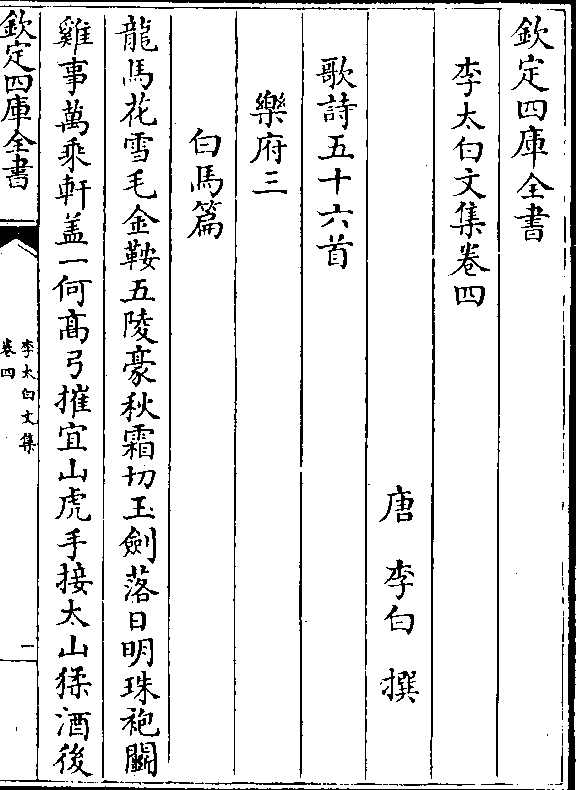 欽定四庫全書
李太白文集卷四
唐 李白 撰
歌詩五十六首
樂府三
白馬篇
龍馬花雪毛金鞍五陵豪秋霜切玉劍落日明珠袍鬭
雞事萬乘軒盖一何高弓摧宜山虎手接太山猱酒後
欽定四庫全書
李太白文集
卷四
一